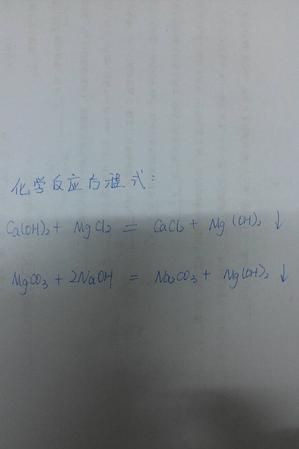 化学反应方程式:
Ca(OH)₂ + MgCl₂ = CaCl₂ + Mg(OH)₂ ↓
MgCO₃ + 2NaOH = Na₂CO₃ + Mg(OH)₂ ↓